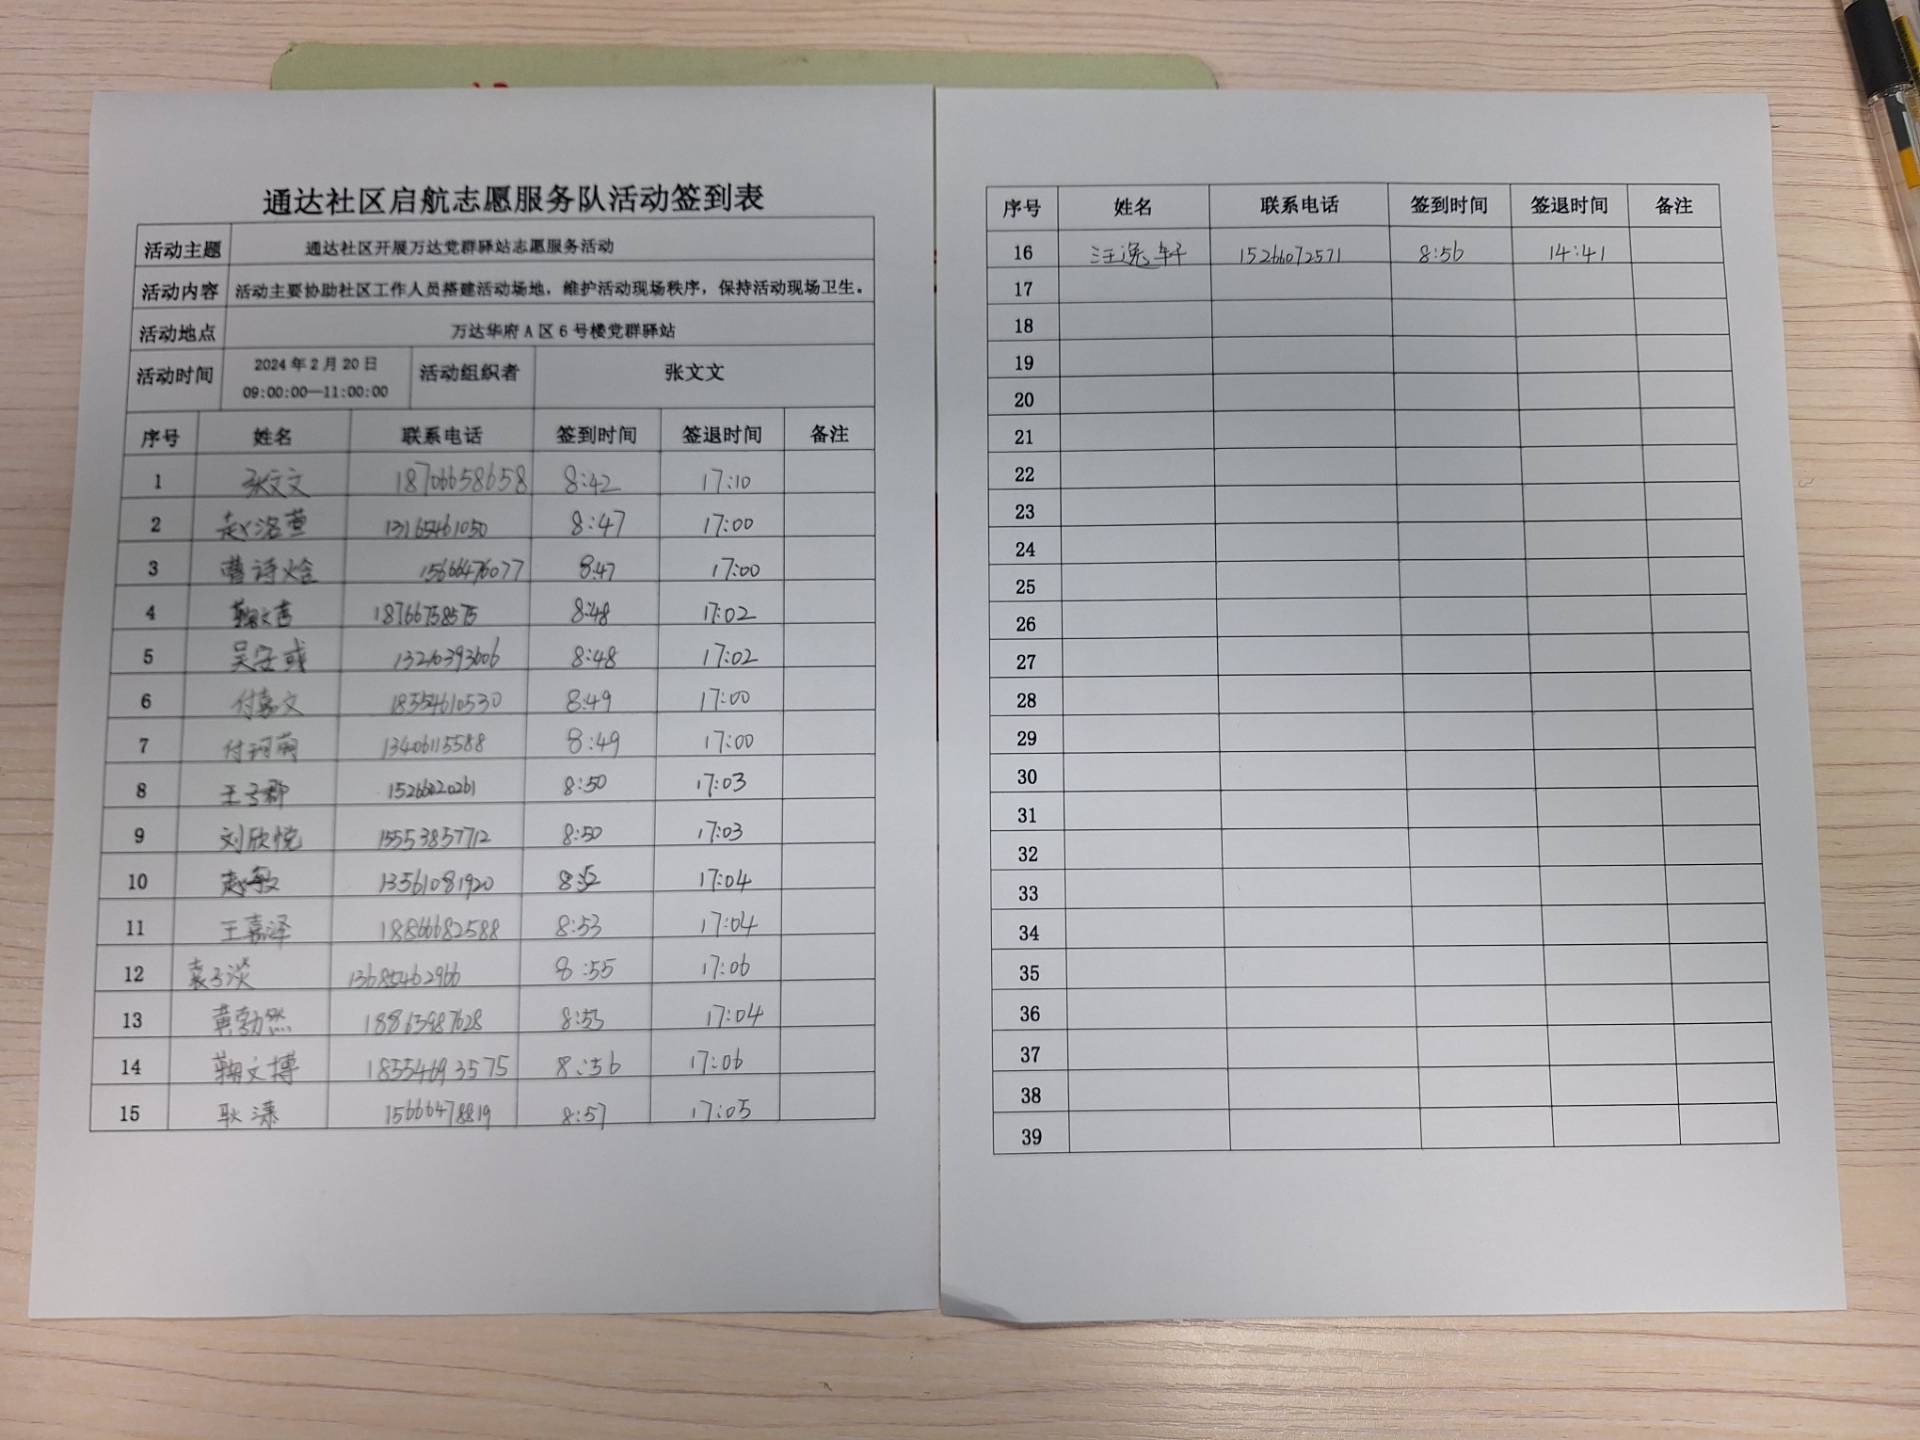 通达社区启航志愿服务队活动签到表
活动主题 通达社区开展万达党群驿站志愿服务活动
活动内容 活动主要协助社区工作人员搭建活动场地，维护活动现场秩序，保持活动现场卫生。
活动地点 万达华府A区6号楼党群驿站
活动时间 2024年2月20日 09:00:00—11:00:00 活动组织者 张文文
序号 姓名 联系电话 签到时间 签退时间 备注
1 张文文 18706658658 8:42 17:10
2 赵洛萱 13165461050 8:47 17:00
3 曹诗烩 15666476077 8:47 17:00
4 18766758575 8:48 17:02
5 吴安彧 13210393606 8:48 17:02
6 付嘉文 18554610530 8:49 17:00
7 付珂萌 13406115588 8:49 17:00
8 王子郡 15266020261 8:50 17:03
9 刘欣悦 15553857712 8:50 17:03
10 赵敏 13561081920 8:52 17:04
11 王嘉泽 18866682588 8:53 17:04
12 袁子淡 13685462966 8:55 17:06
13 黄勃然 18863987628 8:55 17:04
14 鞠文博 18554693575 8:56 17:06
15 耿潇 15666478819 8:57 17:05
序号 姓名 联系电话 签到时间 签退时间 备注
16 汪逸轩 15266072571 8:56 14:41
17
18
19
20
21
22
23
24
25
26
27
28
29
30
31
32
33
34
35
36
37
38
39